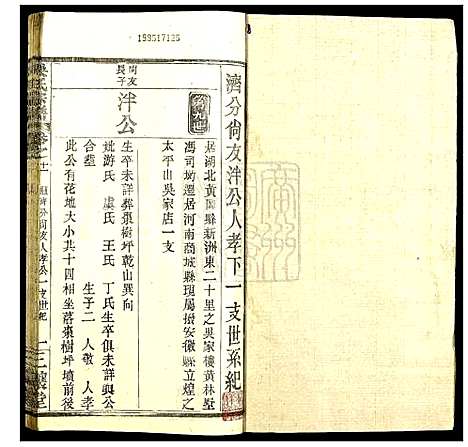 159517125
濟分尙友泮公人孝下一支世系紀
尙友
長子
泮公
居湖北黃岡縣新洲東二十里之吳家樓黃林墅
馮司坳遷居河南商城縣現屬撥安徽縣立煌之
太平山吳家店一支
生卒未詳葬棗樹坪乾山巽向
妣游氏 虞氏 王氏 丁氏生卒俱未詳與公
合塟 生子二 人敬 人孝
此公有花地大小共十四相坐落棗樹坪墳前後
氏宗譜
濟分尙友人孝公一支世紀